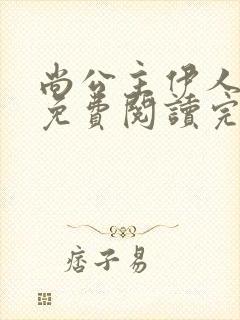 尚公主伊人
免費閱讀完
痞子易